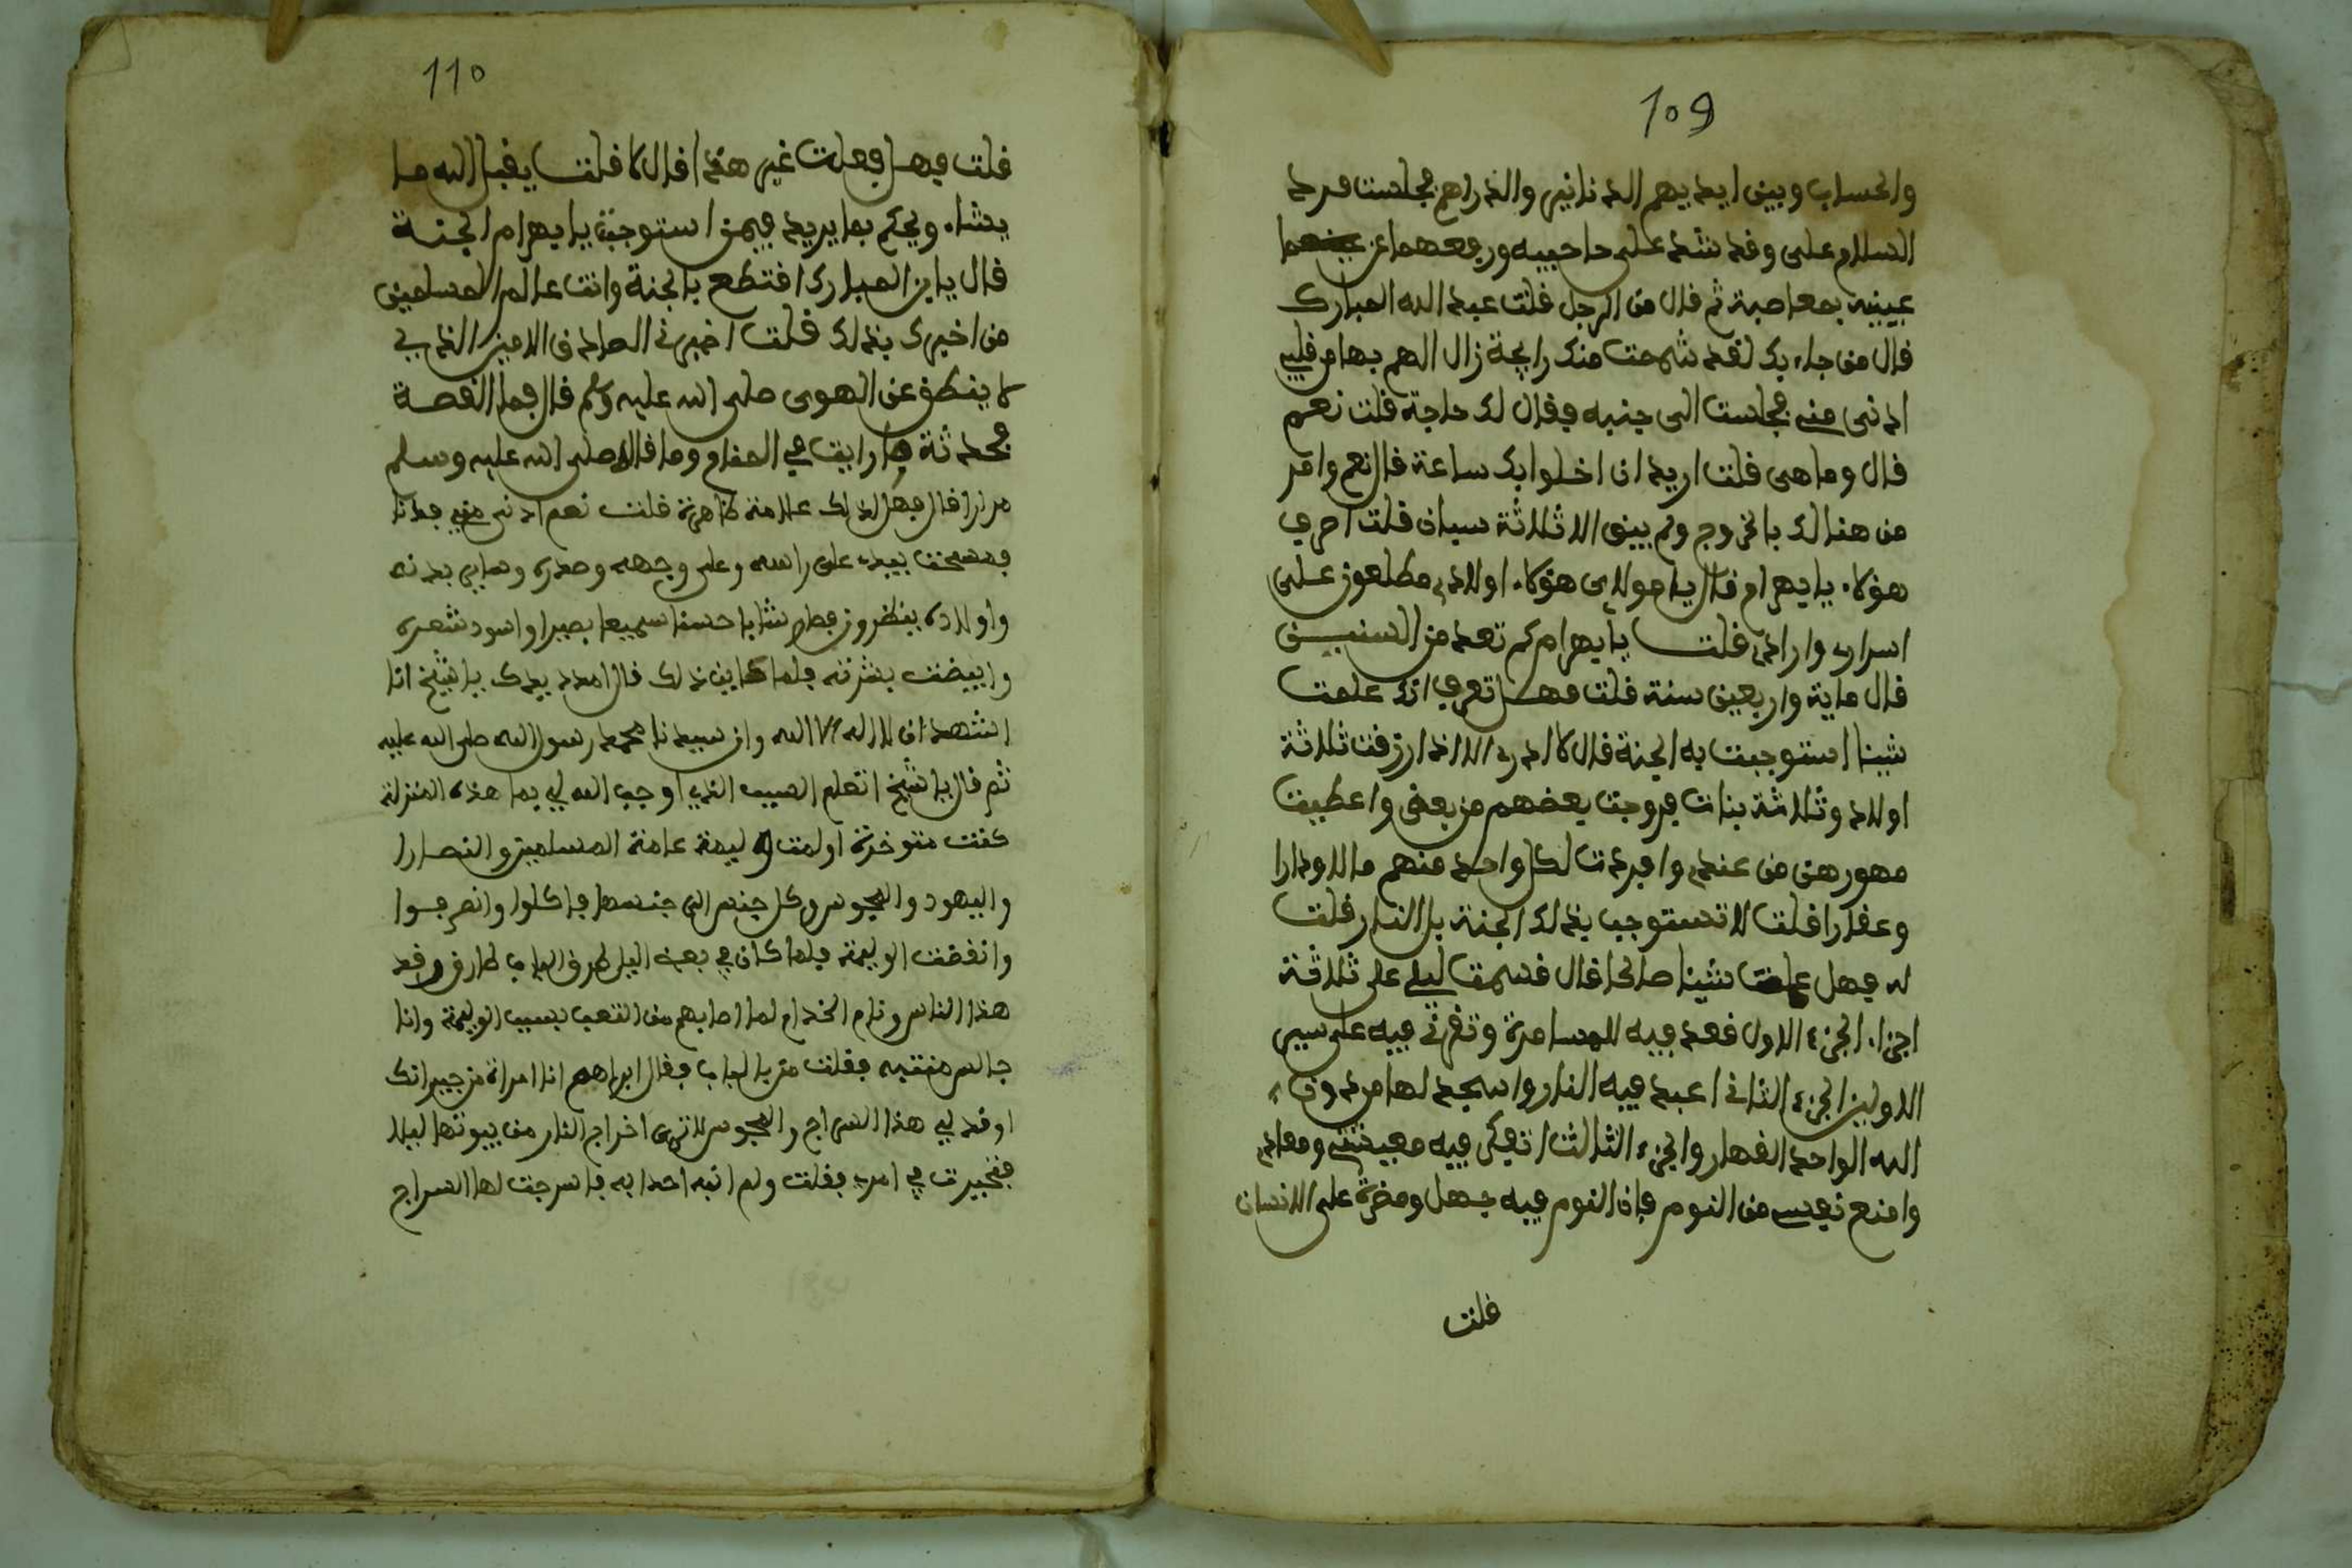 109
والحساب وبين ايديهم الدنانير والدراهم فجلست فرد
السلام على وقد شد على حاجبيه ورفعهما عن
عينيه بعصابة ثم قال من الرجل قلت عبد الله المبارك
قال من جاء بك لقد شممت منك رايحة زال الهم بها من قلبي
ادنى مني فجلست الى جنبه فقال لك حاجة قلت نعم
قال وما هى قلت اريد ان اخلوا بك ساعة قال نعم وامر
من هنالك بالخروج ولم يبق الا ثلاثة سبان قلت اصرف
هؤلاء يا بهرام قال يا مولاي هؤلاء اولادي مطلعون على
اسراري وارادي قلت يا بهرام كم تعد من السنيـن
قال ماية واربعين سنة قلت فهل تعرف انك علمت
شيئا استوجبت به الجنة قال لا ادري الا اذا رزقت ثلاثة
اولاد وثلاثة بنات فزوجت بعضهم من بعض واعطيت
مهورهن من عندي وافردت لكل واحد منهم مالا ودارا
وعقارا قلت لا تستوجب بذلك الجنة بل النار قلت
له فهل عملت شيئا صالحا قال قسمت ليلي على ثلاثة
اجزاء الجزء الاول فعد فيه للمسامرة وتقرئ فيه على سير
الاولين الجزء الثاني اعبد فيه النار واسجد لها من دون
الله الواحد القهار والجزء الثالث اتفكر فيه معيشتي ومعادي
وامنع نفسي من النوم فإن النوم فيه جهل ومضرة على الانسان
قلت
110
قلت فهل فعلت غير هذا قال لا قلت يفعل الله ما
يشاء ويحكم بما يريد فبمن استوجبت يا بهرام الجنـة
قال يا بن المبارك افتطمع بالجنة وانت عالم المسلمين
من اخبرك بذلك قلت اخبرني الصادق الامين الذي
لا ينطق عن الهوى صلى الله عليه وسلم قال فما القصة
فحدثته بما رايت في المقام وما قال لي صلى الله عليه وسلم
مرارا قال فهل لذلك علامة ظاهرة قلت نعم ادنى مني فدنا
فمسحت بيدي على راسه وعلى وجهه وصدره وساير بدنه
واولاده ينظرون فصار شابا حسنا سميعا بصيرا واسود شعره
وابيضت بشرته فلما عاين ذلك قال امدد يدك يا شيخ انا
اشهد ان لا اله الا الله وان سيدنا محمد رسول الله صلى الله عليه
ثم قال يا شيخ اتعلم السبب الذي اوجب الله لي بها هذه المنزلة
كنت متوخرة اولمت وليمة عامة المسلمين والنصارا
واليهود والمجوس وكل جنس الى جنسها فاكلوا وانصرفـوا
وانقضت الوليمة فلما كان في بعض اليل طرق الباب طارق وقد
هذا الناس ونام الخدام لما اصابهم من التعب بسبب الوليمة وانا
جالس منتبه فقلت من بالباب فقال ابراهم انا امراة من جيرانك
اوقد لي هذا السراج والمجوس لا ترى اخراج النار من بيوتها ليلا
فتحيرت في امري فقلت ولم انبه احدا به فاسرجت لها السراج